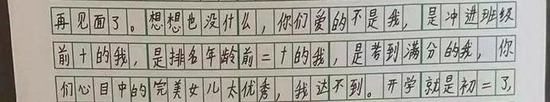 再见面了。想想也没什么，你们爱的不是我，是冲进班级
前十的我，是排名年龄前二十的我，是考到满分的我，你
们心目中的完美女儿太优秀，我达不到。开学就是初二了，